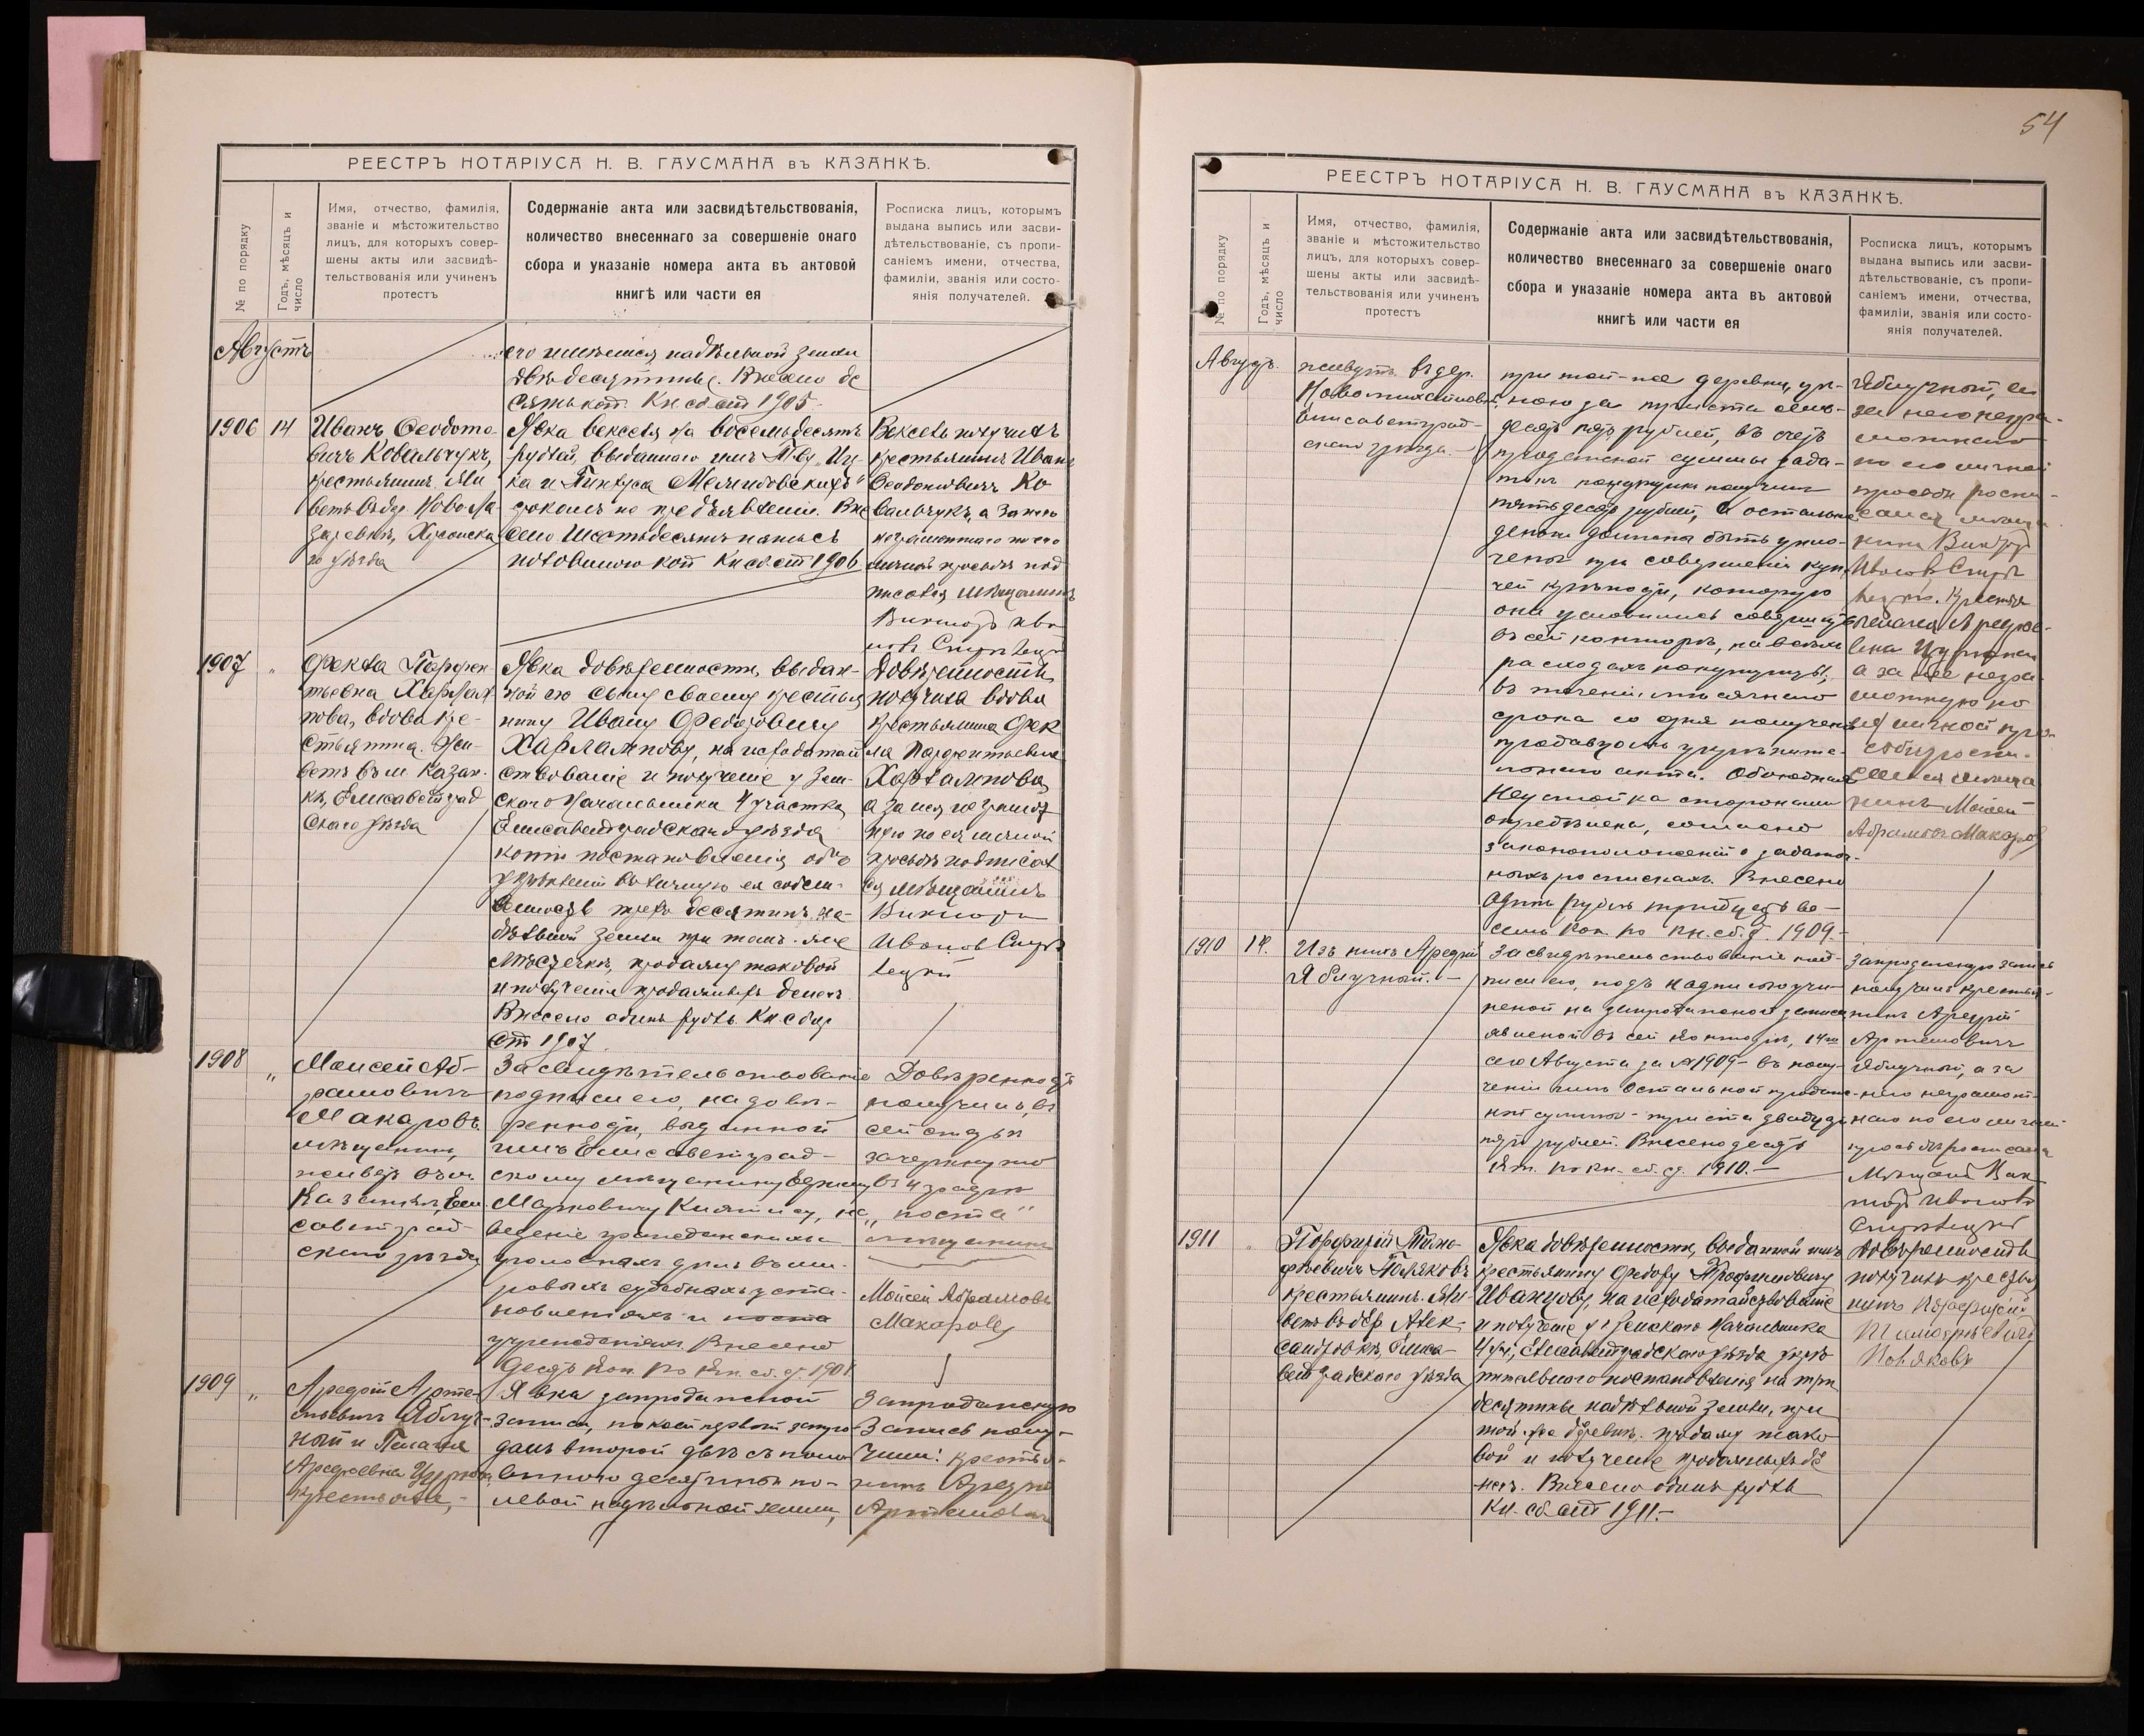 54
РЕЕСТРЪ НОТАРІУСА Н. В. ГАУСМАНА въ КАЗАНКѢ.
№ по порядку
Годъ, мѣсяцъ и
число
Имя, отчество, фамилія,
званіе и мѣстожительство
лицъ, для которыхъ совер-
шены акты или засвидѣ-
тельствованія или учиненъ
протестъ
Содержаніе акта или засвидѣтельствованія,
количество внесеннаго за совершеніе онаго
сбора и указаніе номера акта въ актовой
книгѣ или части ея
Росписка лицъ, которымъ
выдана выпись или засви-
дѣтельствованіе, съ пропи-
саніемъ имени, отчества,
фамиліи, званія или состо-
янія получателей.
Августъ
его имѣющейся надѣльной земли
двѣ десятины. Внесено де
сять коп. Кн сб ст 1905.
1906 14
Иванъ Феодото-
вичъ Ковальчукъ,
крестьянинъ. Жи
ветъ въ дер. Ново-Ла-
заревкѣ, Херсонска
го уѣзда
Явка векселя на восемьдесятъ
рублей, выданнаго имъ Т-ву „Иц-
ка и Пинкуса
срокомъ по предъявленіи. Вне
сено шестьдесятъ пять съ
половиною коп Кн сб ст 1906
Вексель получилъ
крестьянинъ Иванъ
Феодотовичъ Ко
вальчукъ, а за него
неграмотнаго по его
личной просьбѣ под
писался мѣщанинъ
Викторъ Ива
новъ
1907 „
Фекла Парфен
тьевна Харлам
пова, вдова кре-
стьянина. Жи-
ветъ въ м. Казан-
кѣ, Елисаветград
скаго уѣзда
Явка довѣренности, выдан-
ной ею сыну своему крестья
нину Ивану Федоровичу
Харлампову, на исходатай
ствованіе и полученіе у Зем-
скаго Начальника 4 участка
Елисаветградскаго уѣзда
копіи постановленія объ
укрѣпленіи въ личную ея собст-
венность трехъ десятинъ на-
дѣльной земли при томъ-же
мѣстечкѣ, продажу таковой
и полученія продажныхъ денегъ.
Внесено одинъ рубль Кн сбор
ст 1907.
Довѣренность
получила вдова
крестьянина Фек
ла Парфентьевна
Харлампова,
а за нея неграмот
ную по ея личной
просьбѣ подписал
ся мѣщанинъ
Викторъ
Ивановъ
1908 „
Моисей Аб-
рамовичъ
Макаровъ
мѣщанинъ,
живетъ въ м.
Казанкѣ, Ели
саветград-
скаго уѣзда
Засвидѣтельствованіе
подписи его, на довѣ-
ренности, выданной
имъ Елисаветград-
скому мѣщанину
Марковичу на
веденіе гражданскихъ и
уголовныхъ дѣлъ въ ми-
ровыхъ судебныхъ уста-
новленіяхъ и поста
учрежденіяхъ Внесено
десять коп. по кн. сб. ст. 1908
Довѣренность
получилъ, въ
сей статьѣ
зачеркнуто
въ 4 графѣ
„поста“
мѣщанинъ
Моисей Абрамовъ
Макаровъ
1909 „
Андрей Арте-
мьевичъ Яблуч-
ный и Пелагея
Андреевна
крестьяне,-
Явка запродажной
записи, по коей первый запро-
далъ второй двѣ съ поло-
виною десятины по-
левой надѣльной земли,
Запродажную
запись полу-
чили: крестья-
нинъ Андрей
Артемовъ
РЕЕСТРЪ НОТАРІУСА Н. В. ГАУСМАНА въ КАЗАНКѢ.
№ по порядку
Годъ, мѣсяцъ и
число
Имя, отчество, фамилія,
званіе и мѣстожительство
лицъ, для которыхъ совер-
шены акты или засвидѣ-
тельствованія или учиненъ
протестъ
Содержаніе акта или засвидѣтельствованія,
количество внесеннаго за совершеніе онаго
сбора и указаніе номера акта въ актовой
книгѣ или части ея
Росписка лицъ, которымъ
выдана выпись или засви-
дѣтельствованіе, съ пропи-
саніемъ имени, отчества,
фамиліи, званія или состо-
янія получателей.
Августъ.
живутъ въ дер.
Елисаветград-
скаго уѣзда.-
при той-же деревни, цѣ-
ною за триста семь-
десятъ пять рублей, въ счетъ
продажной суммы зада-
токъ продавецъ получилъ
пятьдесятъ рублей, а остальные
деньги должны быть упла-
чены при совершеніи куп-
чей крѣпости, которую
они условились совершить
въ сей конторѣ, на всѣхъ
расходахъ покупщицы,
въ теченіи мѣсячнаго
срока со дня полученія
продавцомъ укрѣпите-
льнаго акта. Обоюдная
неустойка сторонами
опредѣлена, согласно
законоположеній о задаточ-
ныхъ роспискахъ. Внесено
одинъ рубль тридцать во-
семь коп. по кн. сб. ст. 1909.-
Яблучный, а
за него негра-
мотнаго
по его личной
просьбѣ роспи-
сался мѣща
нинъ Викторъ
Ивановъ
крестья
Андре-
евна
а за нее негра-
мотную по
ея личной прось-
бѣ роспи-
сался мѣща
нинъ Моисей
Абрамовъ Макаровъ
1910 14.
Изъ нихъ Андрей
Яблучный.-
Засвидѣтельствованіе под-
писи его, подъ надписью учи-
ненной на запродажной записи
явленной въ сей конторѣ, 14го
сего Августа за №1909- въ полу-
ченіи имъ остальной продаж-
ной суммы - триста двадцать
пять рублей. Внесено десять
коп. по кн. сб. ст. 1910.-
Запродажную запись
получилъ крестья-
нинъ Андрей
Артемовичъ
Яблучный, а за
него неграмот-
наго по его личной
просьбѣ росписался
мѣщанинъ Вик-
торъ Ивановъ
1911 „
Порфирій Тимо-
фѣевичъ Поляковъ
крестьянинъ. Жи-
ветъ въ дер Алек-
сандровкѣ, Елиса-
ветградскаго уѣзда
Явка довѣренности, выданной имъ
крестьянину Федору Трофимовичу
Иванцову, на исходатайствованіе
и полученіе у Земскаго Начальника
4 уч., Елисаветградскаго уѣзда укрѣ
пительнаго постановленія на три
десятины надѣльной земли, при
той-же деревнѣ, продажу тако
вой и полученіе продажныхъ де
негъ. Внесено одинъ рубль
Кн. сб. ст 1911.-
Довѣренность
получилъ крестья
нинъ Порфирій
Тимофѣевичъ
Поляковъ